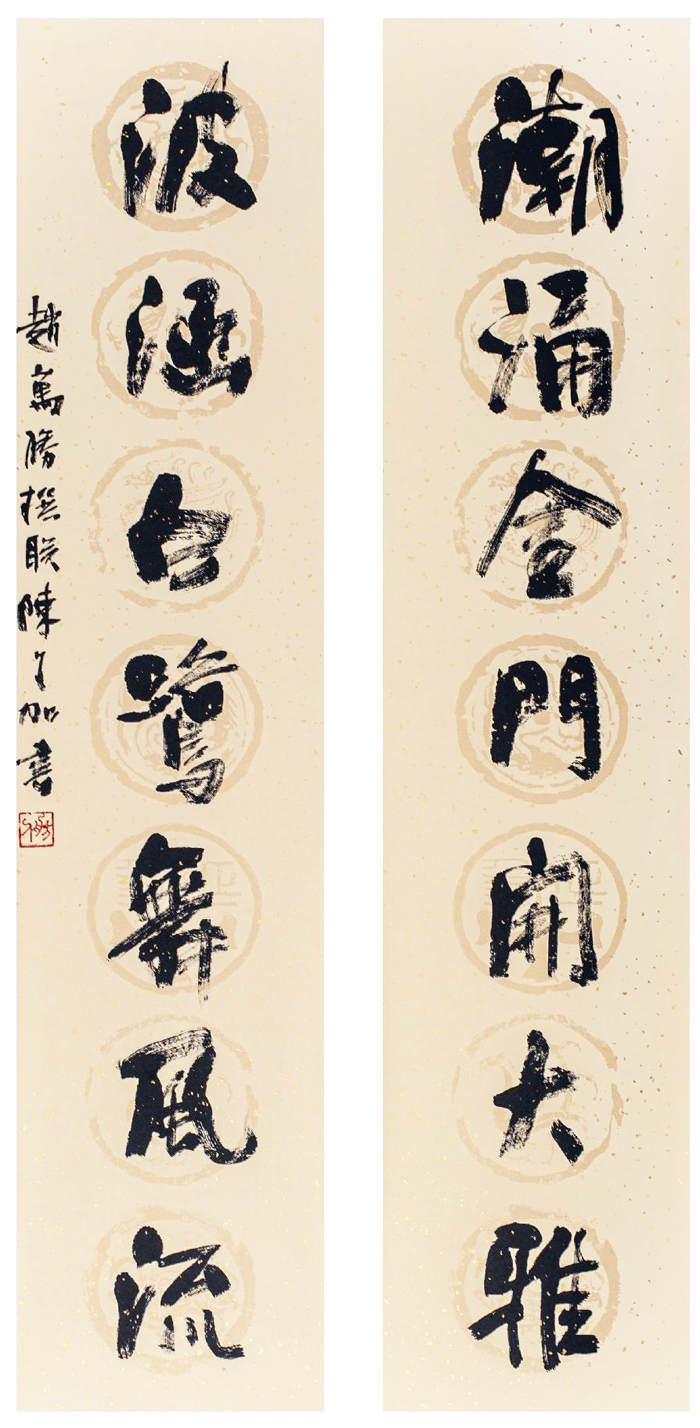 潮涌金門開大雅
波涵白鷺舞風流
趙萬勝撰聯陳加書